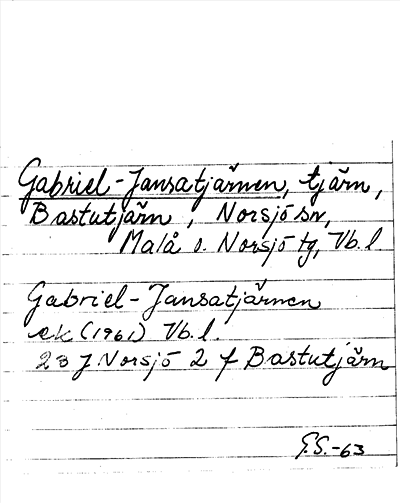 Gabriel-Jansatjärnen, tjärn,
Bastutjärn, Norsjö sn,
Malå o. Norsjö tg, Vb. l.
Gabriel-Jansatjärnen
ek (1961) Vb. l.
23 J Norsjö 2 f Bastutjärn
G.S.-63